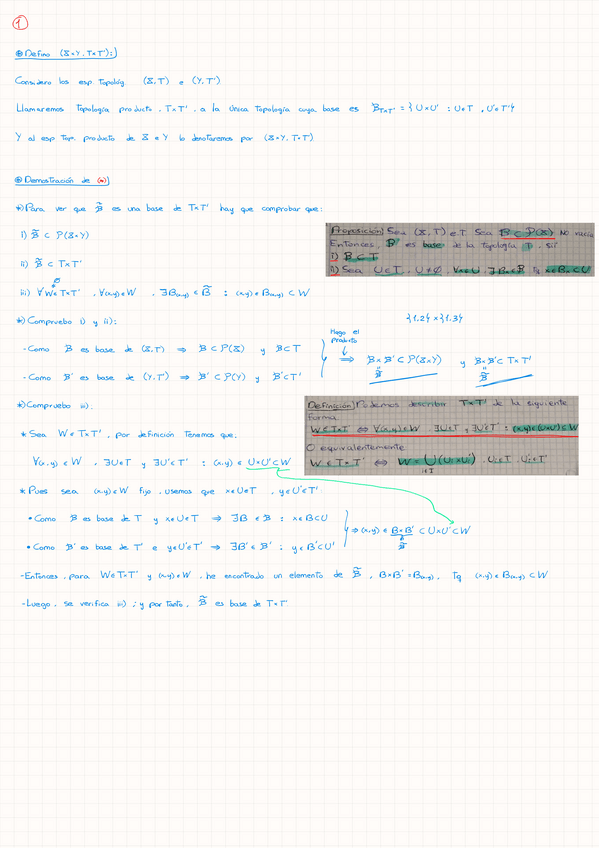 1
⊛ Defino (X×Y, T×T'):
Considero los esp. Topológ. (X,T) e (Y,T')
Llamaremos Topología producto, T×T', a la única Topología cuya base es B_{T×T'} = { U×U' : U∈T, U'∈T' }
Y al esp Top. producto de X e Y lo denotaremos por (X×Y, T×T')
⊛ Demostración de (*)
*) Para ver que B̃ es una base de T×T' hay que comprobar que:
i) B̃ ⊂ P(X×Y)
ii) B̃ ⊂ T×T'
iii) ∀W∈T×T', ∀(x,y)∈W, ∃B(x,y) ∈ B̃ : (x,y)∈B(x,y) ⊂ W
Proposición) Sea (X,T) e.T Sea B ⊂ P(X) no vacío
Entonces, B es base de la topología T, sii
i) B ⊂ T
ii) Sea U∈T, U≠∅, ∀x∈U, ∃Bx∈B Tq x∈Bx⊂U
*) Compruebo i) y ii):
{1,2}×{1,3}
- Como B es base de (X,T) ⇒ B ⊂ P(X) y B⊂T
- Como B' es base de (Y,T') ⇒ B' ⊂ P(Y) y B'⊂T'
Hago el
producto
⇒ B×B' ⊂ P(X×Y) y B×B' ⊂ T×T'
B̃ B̃
*) Compruebo iii):
Definición) Podemos describir T×T' de la siguiente
forma
W∈T×T' ⇔ ∀(x,y)∈W ∃U∈T y ∃U'∈T' : (x,y)∈(U×U')⊂W
O equivalentemente
W∈T×T' ⇔ W = ⋃(Ui×Ui'), Ui∈T, Ui'∈T'
i∈I
* Sea W∈T×T', por definición Tenemos que:
∀(x,y)∈W, ∃U∈T y ∃U'∈T' : (x,y)∈U×U'⊂W
* Pues sea (x,y)∈W fijo, usemos que x∈U∈T, y∈U'∈T'
• Como B es base de T y x∈U∈T ⇒ ∃B∈B : x∈B⊂U
• Como B' es base de T' e y∈U'∈T' ⇒ ∃B'∈B' : y∈B'⊂U'
⇒ (x,y) ∈ B×B' ⊂ U×U' ⊂ W
B̃
- Entonces, para W∈T×T' y (x,y)∈W, he encontrado un elemento de B̃, B×B' = B(x,y), Tq (x,y)∈B(x,y) ⊂ W
- Luego, se verifica iii) ; y por tanto, B̃ es base de T×T'